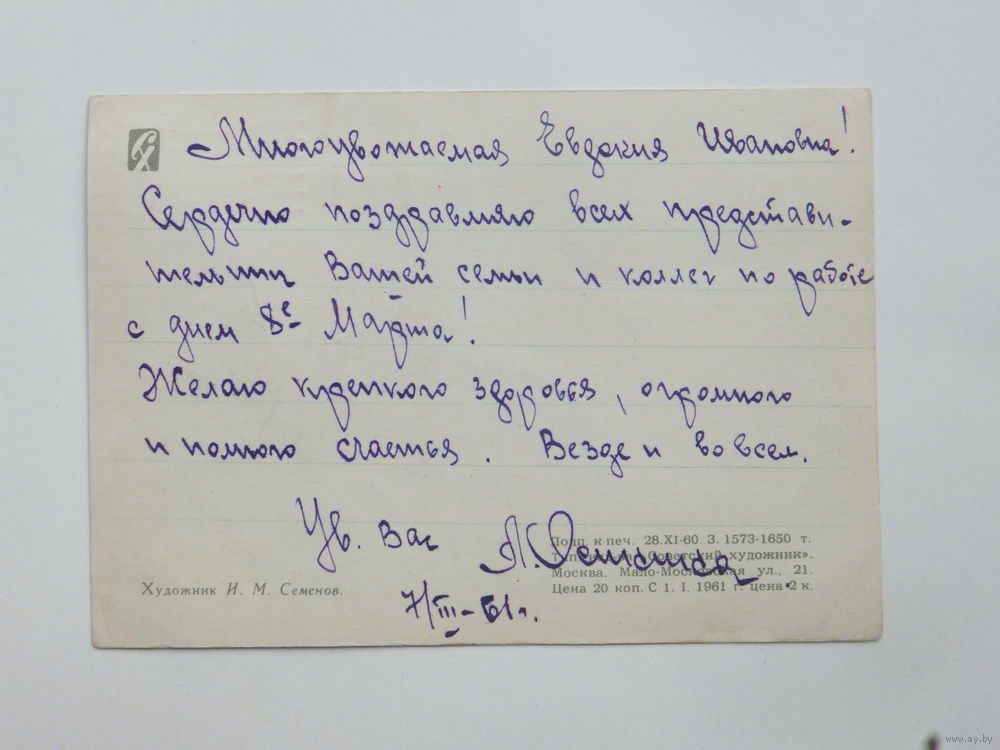 Многоуважаемая Евдокия Ивановна!
Сердечно поздравляю всех представи-
тельниц Вашей семьи и коллег по работе
с днем 8е Марта!
Желаю крепкого здоровья, огромного
и полного счастья. Везде и во всем.
Ув. Вас
7/III-61г.
Художник И. М. Семенов.
Подп. к печ. 28.XI-60. З. 1573-1650 т.
"Советский художник».
Москва. Мало-Московская ул., 21.
Цена 20 коп. С 1. I. 1961 г. цена 2 к.
www.ay.by